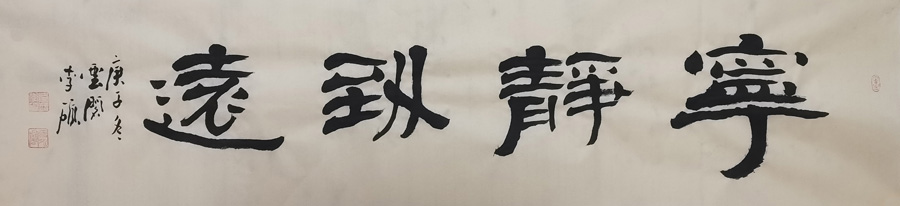 寧靜致遠
庚子冬
雲閒
李硕